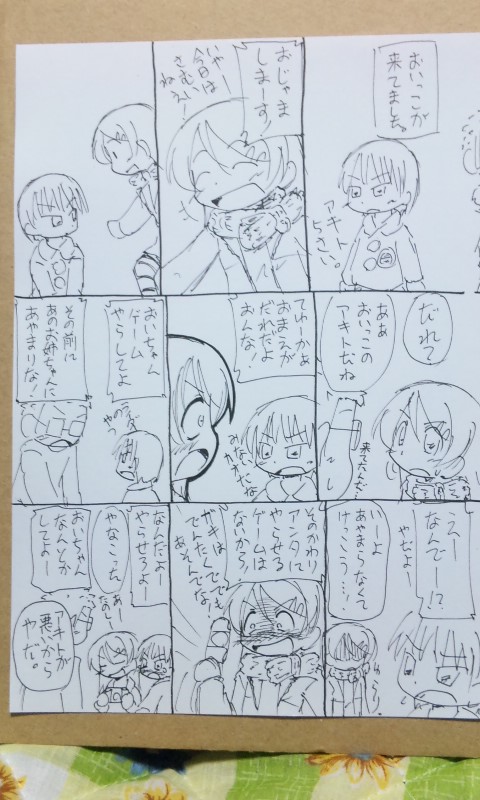 おいっこが
来てました。
アキト
らさい。
おじゃま
しまーす!
いやー
今日は
さむい
ねえー
だれて
あぁ
おいっこの
アキトだね
来てたんだ…
てゆーかぁ
おまえが
だれだよ
おんな!
おいちゃん
ゲーム
やらしてよ
その前に
あのお姉ちゃんに
あやまりな!
えー
なんでー!?
やだよー
いーよ
あやまらなくて
けっこう…
そのかわり
アンタに
やらせる
ゲームは
ないから!
ガキは
でんたくででも
あそんでな!
なんだよー
やらせろよー
やなこった
あー
たのしー
おいちゃん
なんとか
してよー
アキトが
悪いから
やだ。